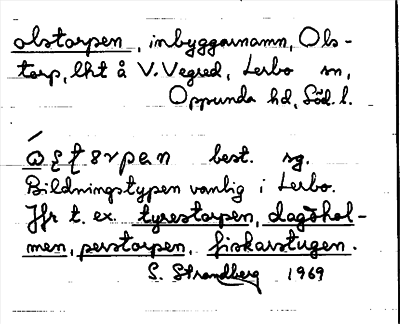 olstorpen, inbyggarnamn, Ols-
torp, lht å V. Vegred, Lerbo sn,
Oppunda hd, Söd. l.
best. sg.
Bildningstypen vanlig i Lerbo.
Jfr t. ex. tyrestorpen, dagökol-
men, perstorpen, fiskarstugen.
S. Strandberg 1969